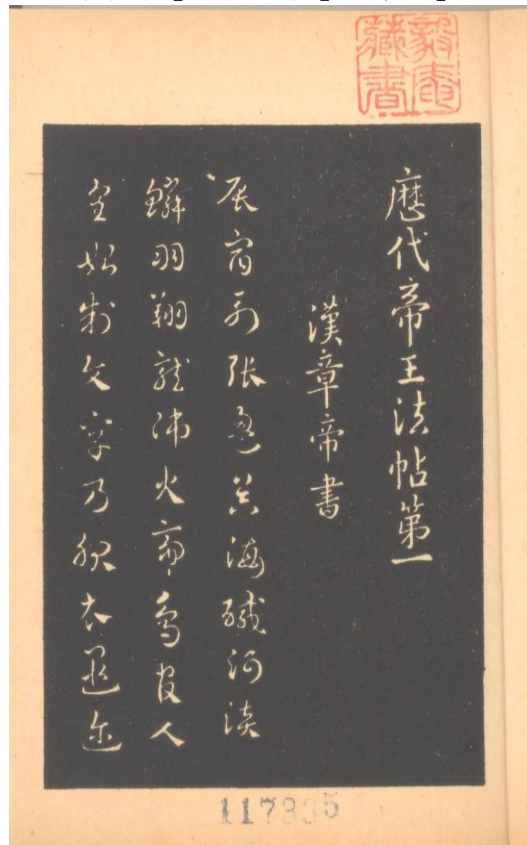 藏書
歷代帝王法帖第一
漢章帝書
辰宿列張海醎河淡
鱗羽翔龍師火帝鳥官人
皇始制文字乃服衣遐邇
117335